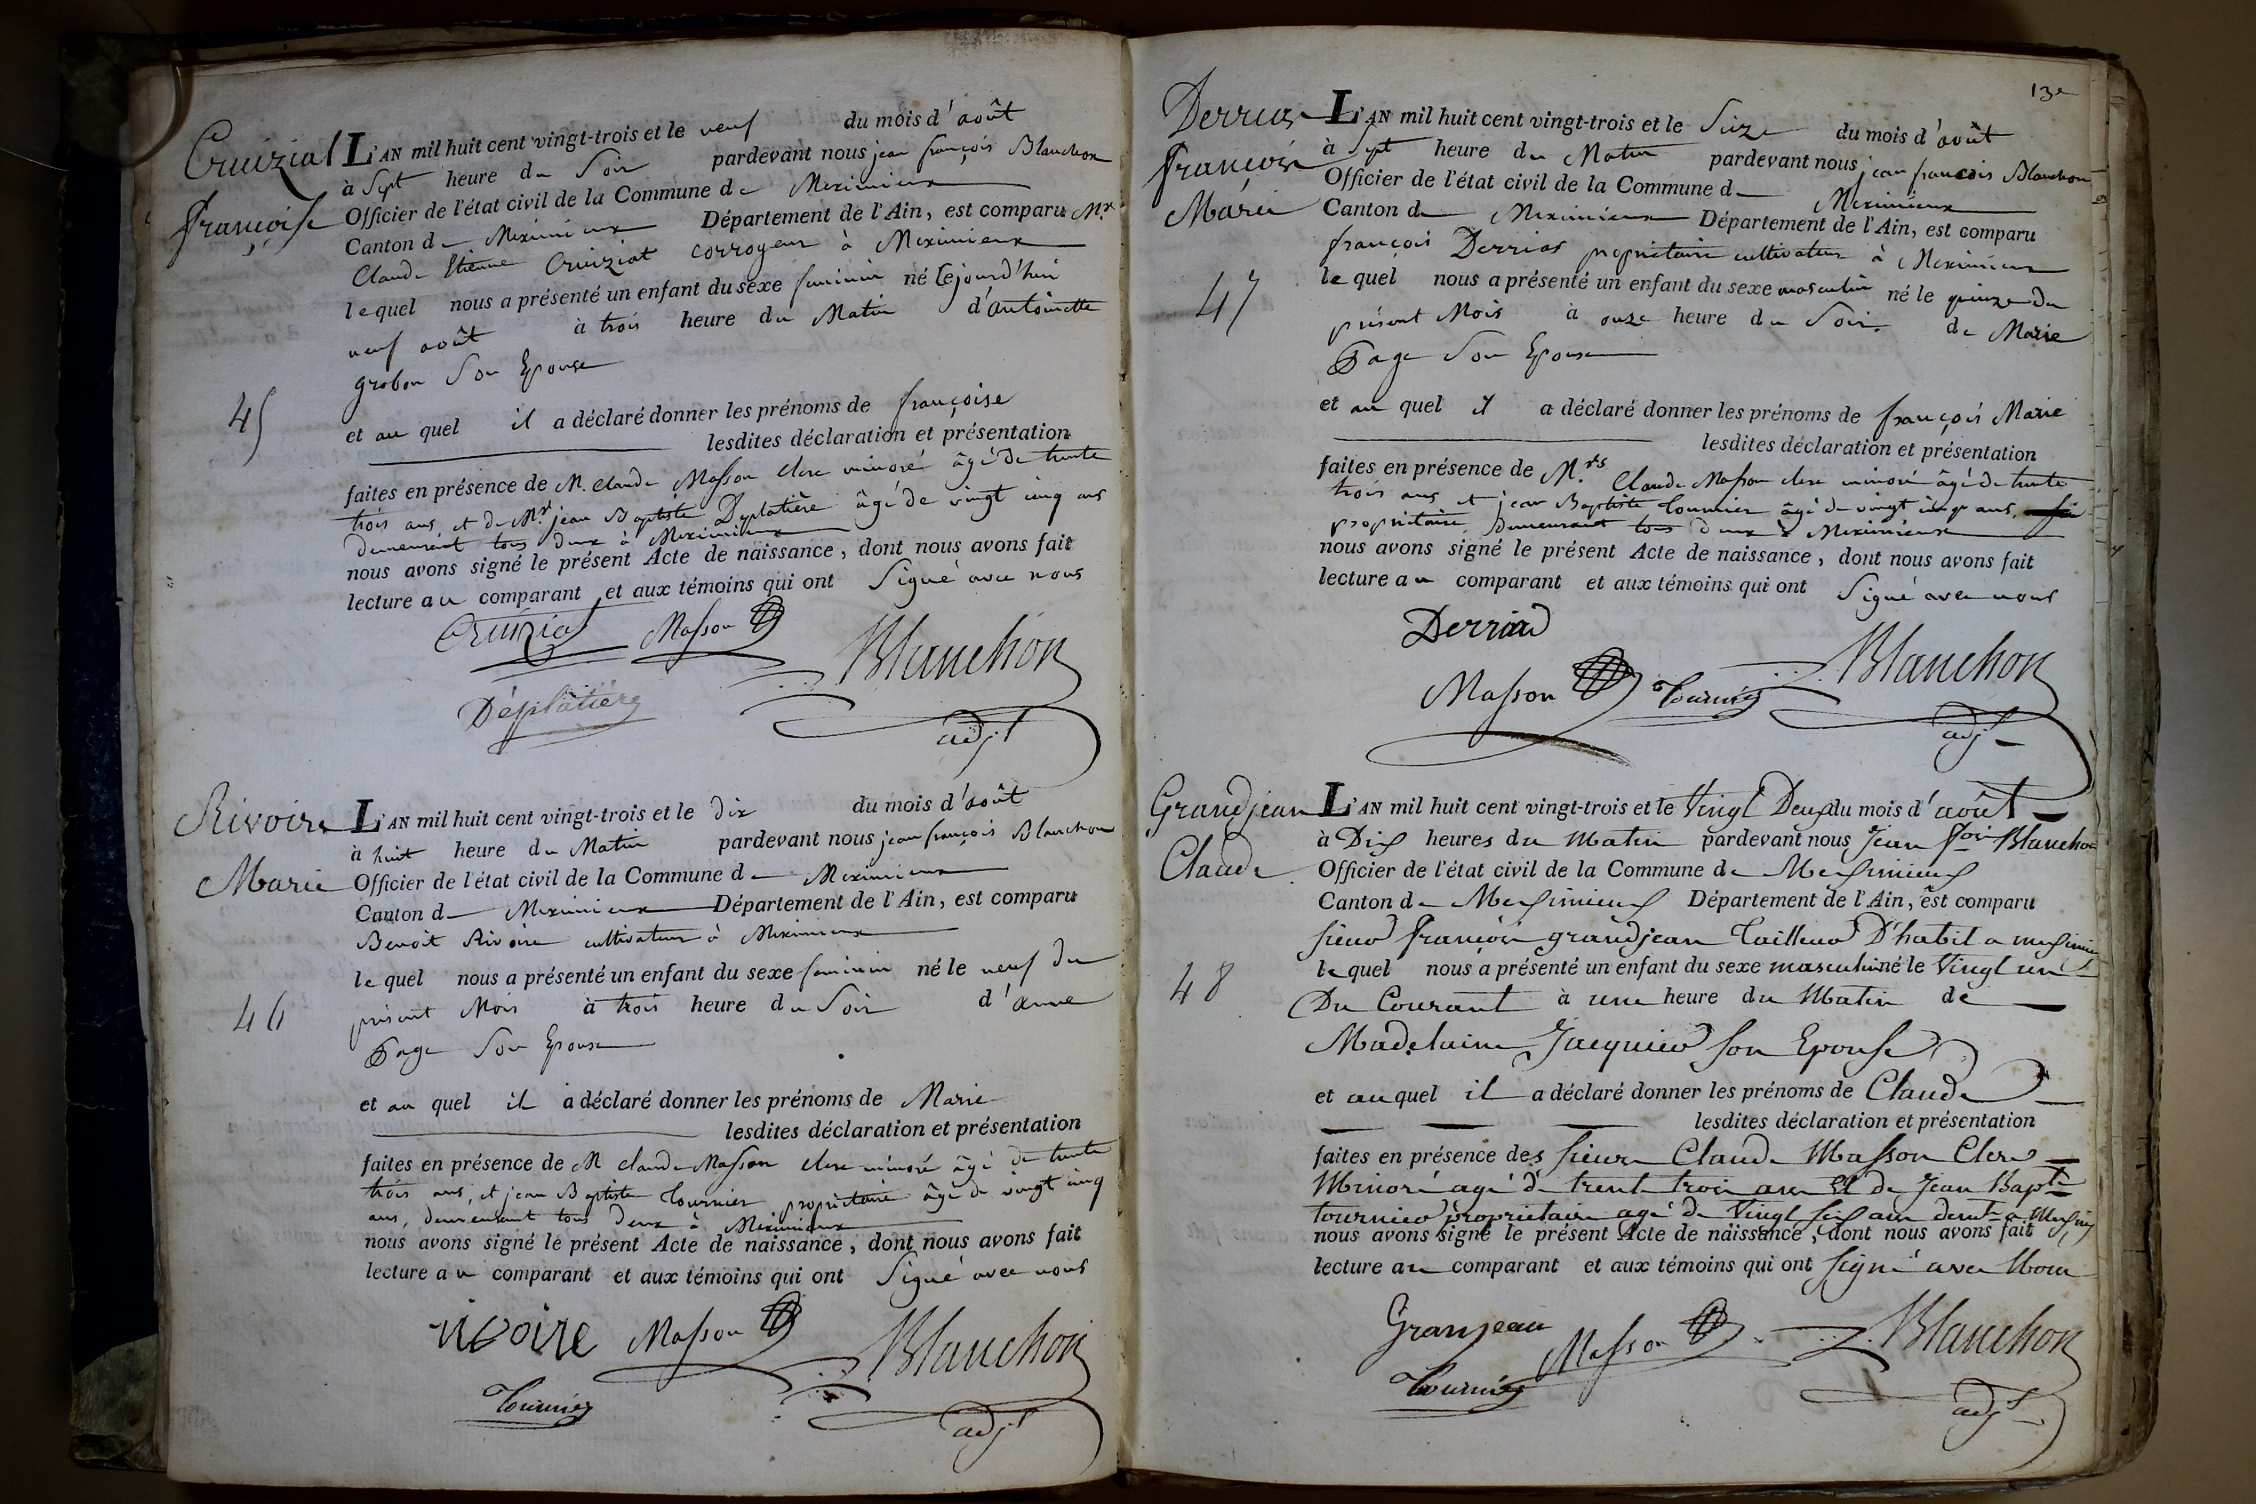 Cruizial
françoise
45
L'AN mil huit cent vingt-trois et le neuf du mois d'août
à Sept heure du Soir pardevant nous jean françois Blanchon
Officier de l'état civil de la Commune de Meximieux
Canton de Meximieux Département de l'Ain, est comparu Mr
Claude Etienne Cruiziat corroyeur à Meximieux
lequel nous a présenté un enfant du sexe feminin né lejourd'hui
neuf août à trois heure du Matin d'antoinette
grobon Son Epouse
et au quel il a déclaré donner les prénoms de françoise
lesdites déclaration et présentation
faites en présence de M. Claude Masson clerc minoré âgé de trente
trois ans et de Mr jean Baptiste Déplatière âgé de vingt cinq ans
demeurant tous deux à Meximieux
nous avons signé le présent Acte de naissance, dont nous avons fait
lecture au comparant et aux témoins qui ont Signé avec nous
Cruizial Masson Blanchon
Déplatière adjt
Rivoire
Marie
46
L'AN mil huit cent vingt-trois et le dix du mois d'août
à huit heure du Matin pardevant nous jean françois Blanchon
Officier de l'état civil de la Commune de Meximieux
Canton de Meximieux Département de l'Ain, est comparu
Benoit Rivoire cultivateur à Meximieux
lequel nous a présenté un enfant du sexe feminin né le neuf du
présent Mois à trois heure du Soir d'anne
Page Son Epouse
et au quel il a déclaré donner les prénoms de Marie
lesdites déclaration et présentation
faites en présence de M Claude Masson clerc minoré âgé de trente
trois ans, et jean Baptiste Tournier propriétaire âgé de vingt cinq
ans, demeurant tous deux à Meximieux
nous avons signé le présent Acte de naissance, dont nous avons fait
lecture au comparant et aux témoins qui ont Signé avec nous
rivoire Masson Blanchon
Tournier adjt
13e
Derrias
françois
Marie
47
L'AN mil huit cent vingt-trois et le Seize du mois d'août
à Sept heure du Matin pardevant nous jean francois Blanchon
Officier de l'état civil de la Commune de Meximieux
Canton de Meximieux Département de l'Ain, est comparu
françois Derrias propriétaire cultivateur à Meximieux
lequel nous a présenté un enfant du sexe masculin né le quinze du
présent Mois à onze heure du Soir de Marie
Page Son Epouse
et au quel il a déclaré donner les prénoms de françois Marie
lesdites déclaration et présentation
faites en présence de M.rs Claude Masson clerc minoré âgé de trente
trois ans et jean Baptiste Tournier âgé de vingt cinq ans
propriétaire Demeurant tous deux à Meximieux
nous avons signé le présent Acte de naissance, dont nous avons fait
lecture au comparant et aux témoins qui ont Signé avec nous
Derriad
Masson Tournier Blanchon
adjt
Grandjean
Claude
48
L'AN mil huit cent vingt-trois et le Vingt Deux du mois d'août
à Dix heures du Matin pardevant nous Jean fois Blanchon
Officier de l'état civil de la Commune de Meximieux
Canton de Meximieux Département de l'Ain, est comparu
sieur françois grandjean tailleur D'habit a meximieux
lequel nous a présenté un enfant du sexe masculin né le Vingt un
Du Courant à une heure du Matin de
Madelaine Jacquier son Epouse
et au quel il a déclaré donner les prénoms de Claude
lesdites déclaration et présentation
faites en présence des sieurs Claude Masson Clerc
Minoré agé de trente trois ans Et de Jean Bapte
tournier propriétaire agé de Vingt six ans demt a
nous avons signé le présent Acte de naissance, dont nous avons fait
lecture au comparant et aux témoins qui ont signé avec Nous
Granjean Masson Blanchon
Tournier adjt